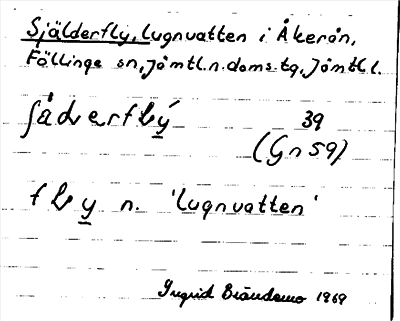 Själderfly, lugnvatten i Åkerån,
Föllinge sn, Jämtl. n. doms. tg, Jämtl l.
ʃåderflý̲ 39
(Gn 59)
fly̲ n. 'lugnvatten'
Ingrid Brändemo 1969